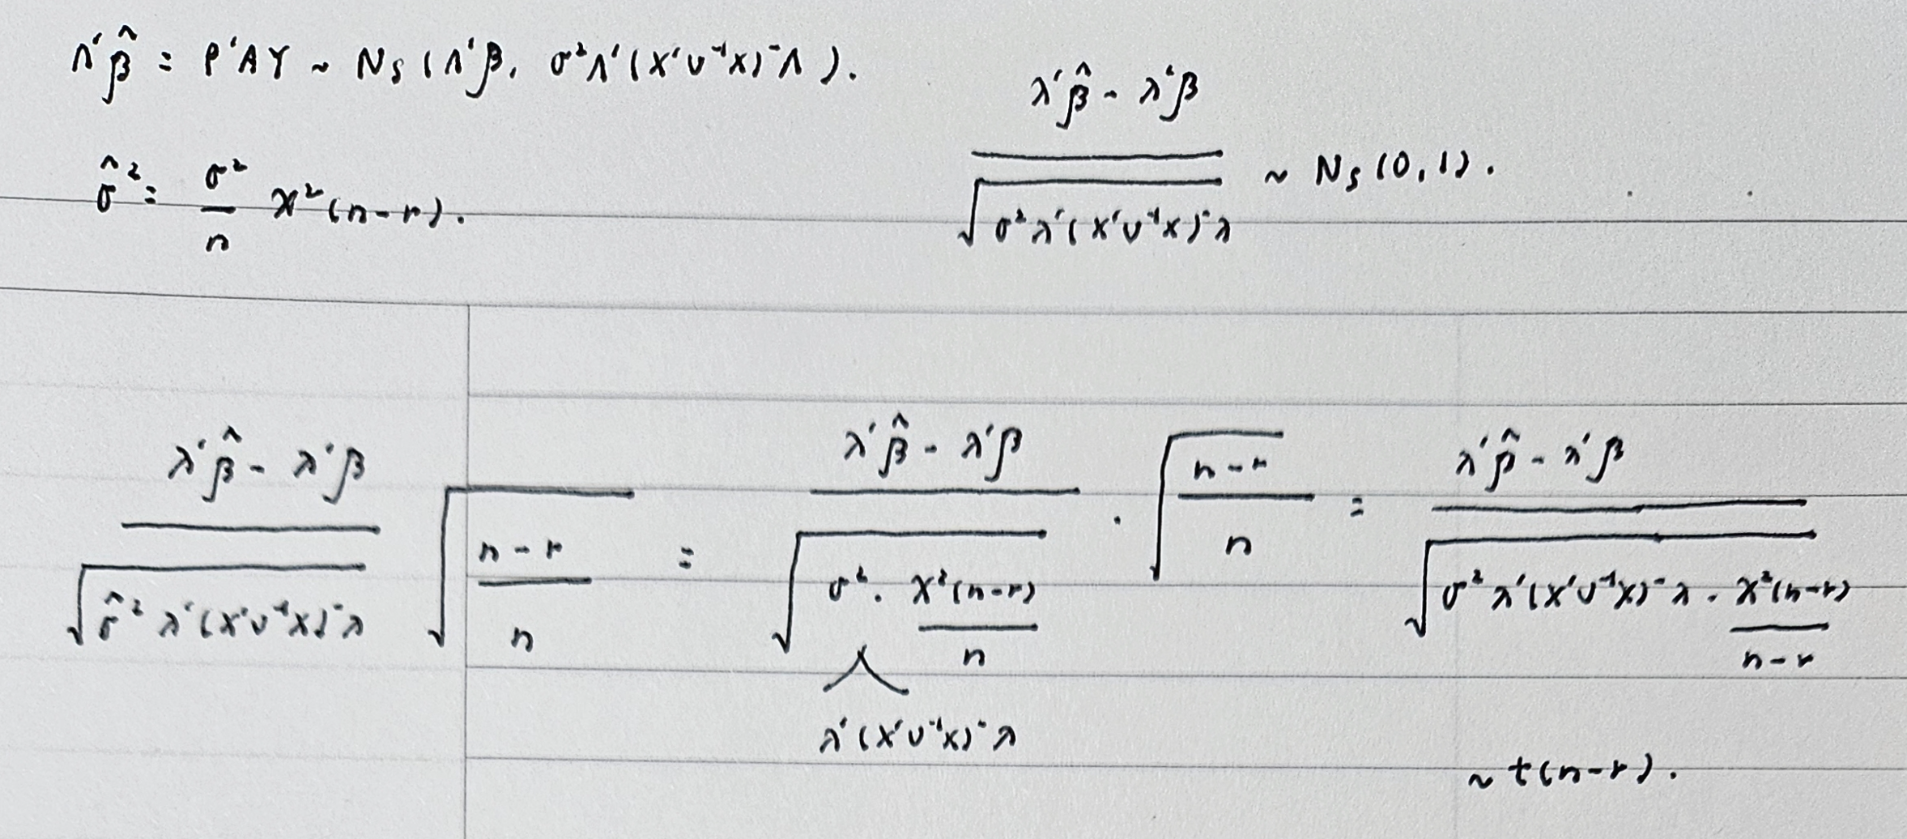 Λ'β̂ = P'AY ~ N_S(Λ'β, σ²Λ'(X'V⁻¹X)⁻Λ).
σ̂² = σ²/n χ²(n-r).
(λ'β̂ - λ'β) / √(σ²λ'(X'V⁻¹X)⁻λ) ~ N_S(0,1).
(λ'β̂ - λ'β) / √(σ̂²λ'(X'V⁻¹X)⁻λ) √((n-r)/n) = (λ'β̂ - λ'β) / √(σ² · χ²(n-r)/n) · √((n-r)/n) = (λ'β̂ - λ'β) / √(σ²λ'(X'V⁻¹X)⁻λ · χ²(n-r)/(n-r))
λ'(X'V⁻¹X)⁻λ
~ t(n-r).